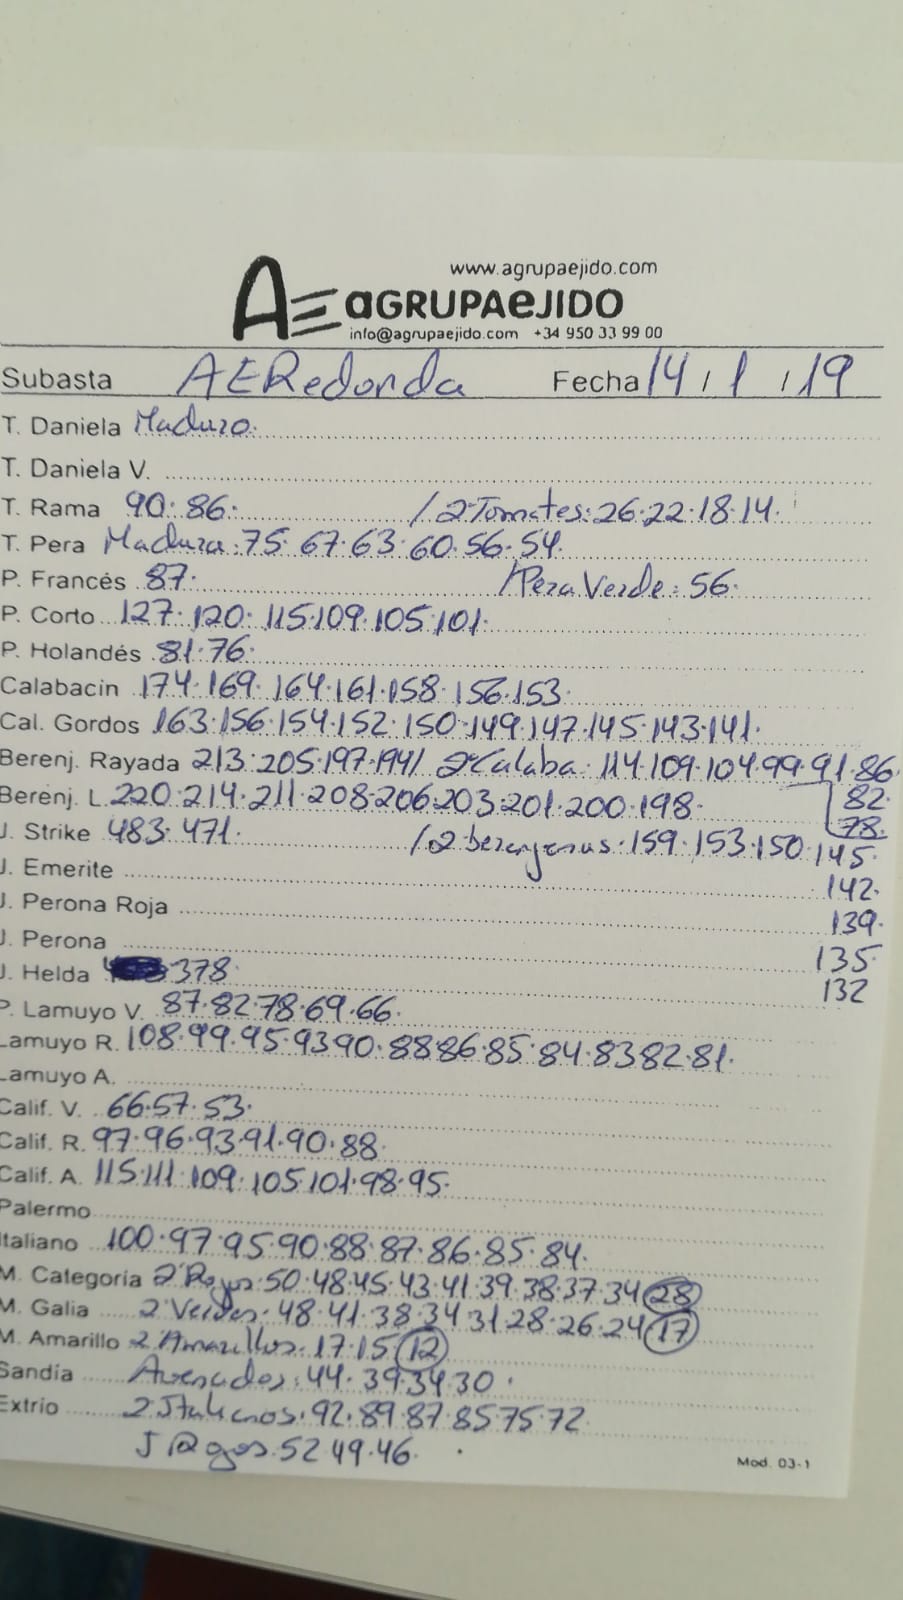 www.agrupaejido.com
AE aGRUPAeJIDO
info@agrupaejido.com +34 950 33 99 00
Subasta AERedonda Fecha 14/1/19
T. Daniela Maduro.
T. Daniela V.
T. Rama 90.86. /2ªTomates:26.22.18.14.
T. Pera Madura:75.67.63.60.56.54.
P. Francés 87. /Pera Verde:56.
P. Corto 127.120.115.109.105.101.
P. Holandés 81.76.
Calabacín 174.169.164.161.158.156.153.
Cal. Gordos 163.156.154.152.150.149.147.145.143.141.
Berenj. Rayada 213.205.197.194/ 2ªCalaba:114.109.104.99.91.86
Berenj. L. 220.214.211.208.206.203.201.200.198. 82
78.
J. Strike 483.471. /2 berenjenas.159.153.150.145.
J. Emerite 142.
J. Perona Roja 139.
J. Perona 135
J. Helda 378. 132
P. Lamuyo V. 87.82.78.69.66.
Lamuyo R. 108.99.95.93.90.88.86.85.84.83.82.81.
Lamuyo A.
Calif. V. 66.57.53.
Calif. R. 97.96.93.91.90.88.
Calif. A. 115.111.109.105.101.98.95.
Palermo
Italiano 100.97.95.90.88.87.86.85.84.
M. Categoría 2ªRojos.50.48.45.43.41.39.38.37.34 28
M. Galia 2 Verdes.48.41.38.34.31.28.26.24 17
M. Amarillo 2 Amarillos.17.15 12
Sandía Asurados:44.39.34.30.
Extrio 2 Italianos.92.89.87.85.75.72.
52.49.46.
Mod. 03-1